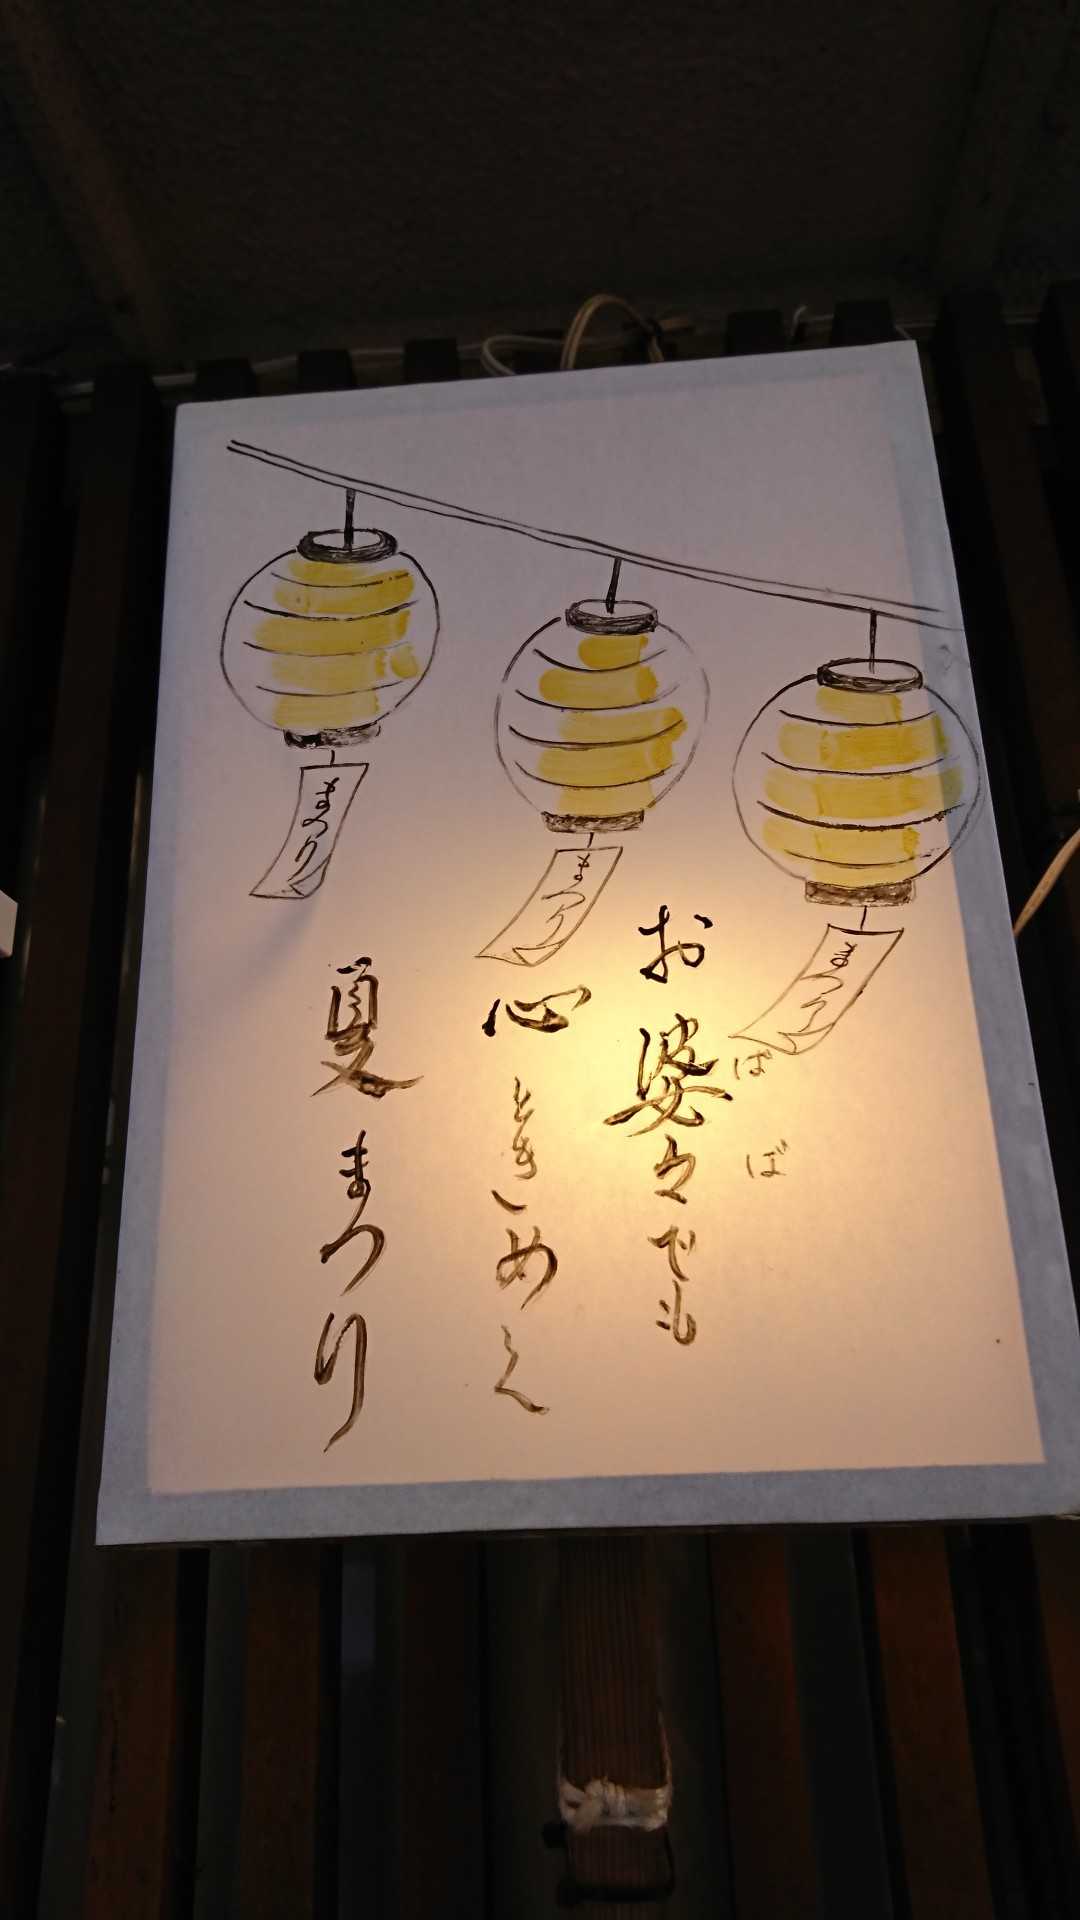 お婆々でも
ばば
心ときめく
夏まつり
まつり
まつり
まつり